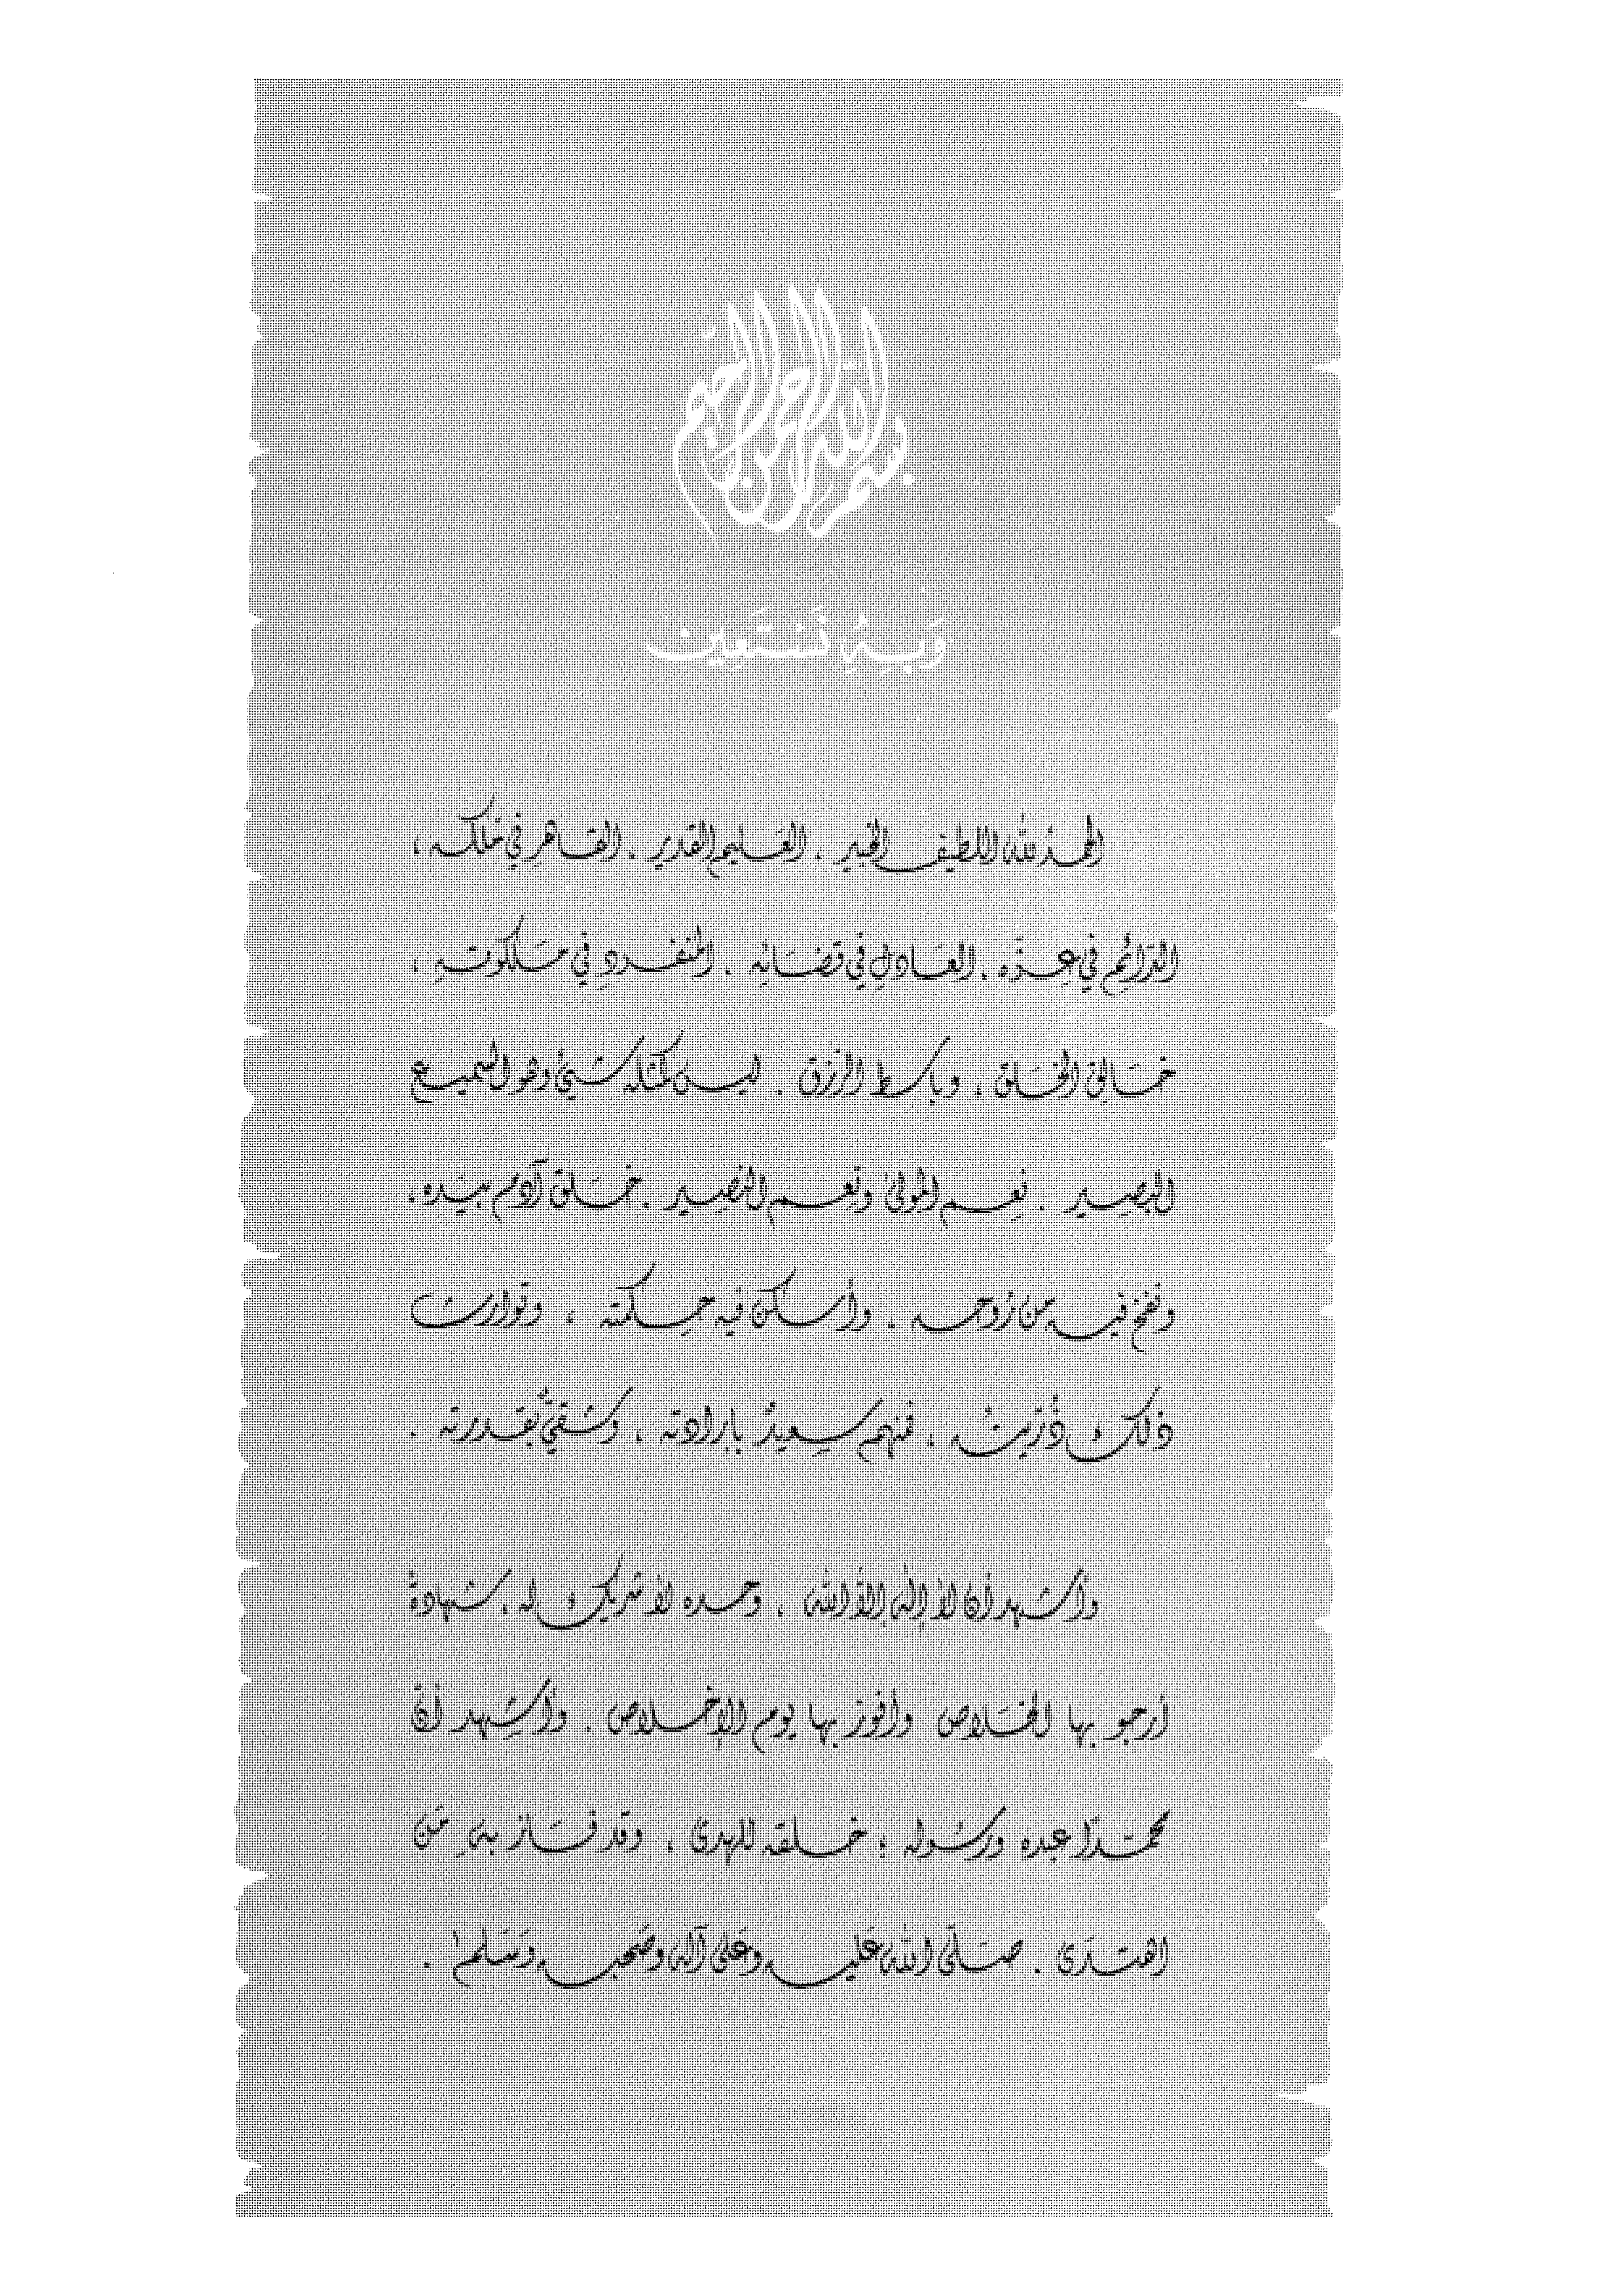 بسم الله الرحمن الرحيم
وَبِهِ نَسْتَعِين
الحمدُ لله اللطيف الخبير ، العَليم القدير ، القاهر في مُلكه ،
الدّائم في عِزّه ، العَادلِ في قضَائه ، المنفردِ في مَلكوتهِ ،
خَالق الخَلق ، وباسط الرّزق . ليس كمثله شيءٌ وهو السميع
البَصِير . نِعم المولىٰ ونِعم النّصِير . خَلق آدم بيَده ،
ونفخ فيه من رُوحه . وأسكن فيه حِكمته ، وتوارثت
ذلك ذُرّيتُه ، فمنهم سعيدٌ بإرادته ، وشقيٌّ بقدرته .
وأشهد أن لا إله إلاّ الله ، وحده لا شريك له ، شهادةً
أرجو بها الخَلاص وأفوز بها يوم الإخلاص . وأشهد أنّ
محمّدًا عبده ورسوله ؛ خلقه للهدىٰ ، وقد فَاز بهِ مَن
اهتَدَىٰ . صَلّى الله عَليه وعَلى آله وصَحبه وَسَلم .